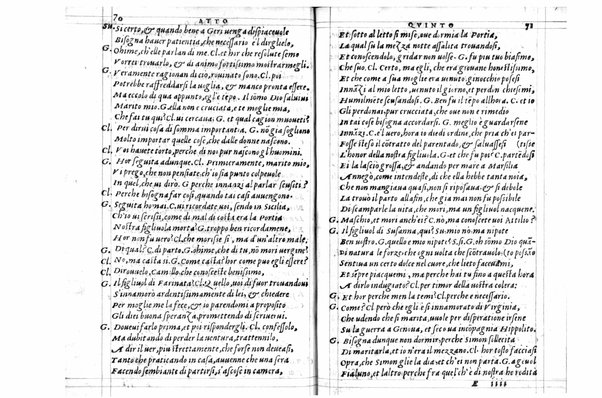 70 ATTO
Su. Si certo, & quando bene a Geri venga dispiacevole
Bisogna haver patientia, che necessario è dirglielo,
G. Ohime, ch'elle parlan di me. Cl. et hor che resister somè
Vorrei trovarlo, & di animo fortissimo mostrarmegli.
G. Veramente ragionan di ciò, rovinato sono. Cl. poi
Potrebbe raffreddarsi la voglia, & manco pronta essere.
Ma eccolo di qua appunto, egli è tẽpo. Il sõmo Dio salvivi
Marito mio. G. ella non è cruciata, e te moglie mia,
Che fai tu qui? Cl. ui cercava. G. et qual cagion muoveti?
Cl. Per dirvi cosa di somma importantia. G. nõ gia sogliono
Molto importar quelle cose, che dalle donne nascono.
Cl. Voi havete torto, perche di noi pur nascono gl'huomini.
G. Hor seguita adunque. Cl. Primieramente, marito mio,
Vi prego, che non pensiate, ch'io sia punto colpevole
In quel, che ui dirò. G. perche innanzi al parlar scusiti?
Cl. Perche bisogna far così, quando tai casi auvengono.
G. Seguita homai. Cl. ui ricordate voi, sendo in Sicilia,
Ch'io ui scrissi, come di mal di costa era la Portia
Nostra figliuola morta? G. troppo ben ricordamene,
Hor non fu uero? Cl. che morisse sì, ma d'un'altro male.
G. Di qual? C. di parto. G. Ohime, che di tu, nõ uergognitene?
Cl. No, ma casta si. G. Come casta? hor come puo egli essere?
Cl. Dirouelo, Camillo, che conosceste benissimo,
G. Il figliuol di Farinata? Cl. Quello, voi di fuor trouandoui
S'innamorò ardentissimamente di lei, & chiedere
Per moglie me la fece, & io parendomi a proposito
Gli diei buona speranza, promettendo di scriuerui.
G. Doueui farlo prima, et poi rispondergli. Cl. confessolo,
Ma dubitand di perder la uentura, trattennilo,
A dir il uer, più strettamente, che forse non deueasi,
Tanto che praticando in casa, auuenne che una sera
Facendo sembiante di partirsi, s'ascose in camera,
QUINTO 71
Et sotto al letto si mise, oue dormia la Portia,
La qual su la mezza notte assalita trouandosi,
Et conoscendolo, gridar non uolse. G. fu piu tuo biasimo,
Che suo. Cl. certo, ma egli, che era giouane honestissimo,
Et che come a sua moglie era uenuto, ginocchio posesi
Innãzi al mio letto, uenuto il giorno, et perdon chiesemi,
Humilmente scusandosi. G. Ben fu il tẽpo allhora. C. et io
Gli perdonai, pur cruciata, che oue non è rimedio
In tai cose bisogna accordarsi. G. meglio è guardarsene
Innãzi. C. è uero, hora io diedi ordine, che pria ch'ei par-
Fosse itesi o il cõtratto del parentado, & saluassesi (tisse
L'honor della nostra figliuola. G. et che fu poi? C. partẽdosi
Ei la lasciò grossa, & andando per mare a Marsilia
Annegò, come intendeste, di che ella hebbe tanta noia,
Che non mangiaua quasi, non si riposaua, & si debole
La trouò il parto allafin, che gia mai non fu possibile
Discamparle la uita, che morì, ma un figliuol nacquene.
G. Maschio, et morì anch'ei? C. nò, ma conoscete uoi Attilio?
G. Il figliuol di Susanna, qui? Su. mio nò, ma nipote
Ben uostro. G. quello è mio nipote? S. si. G. ah sõmo Dio quã-
Di natura le forze, che ogni uolta che scõtraualo (to possõo
Sentiua un certo dolce nel cuore, che lieto faceuami,
Et sẽpre piacquemi, ma perche hai tu fino a questa hora
A dirlo indugiato? Cl. per timor della uostra colera;
G. Et hor perche men la temi? Cl. perche è necessario.
G. Come? Cl. però che egli è innamorato di Virginia,
Che udendo che si marita, uuole per disperatione irsene
Su la guerra a Genoua, et seco ua in compagnia Hippolito.
G. Bisogna dunque non dormir, perche Simon sollecita
Di maritarla, et io n'era il mezzano. Cl. hor tosto facciasi
Opra, che Simon gli la dia et ch'ei non parta. G. ageuol
Fialuno, et l'altro, perche fra quel ch'è di nostra heredità
E iiii